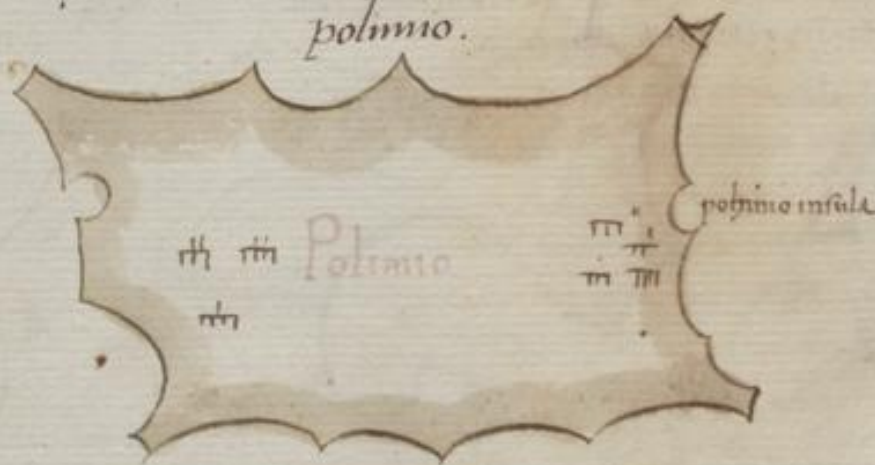 polimio.
Polimio
polimino insula